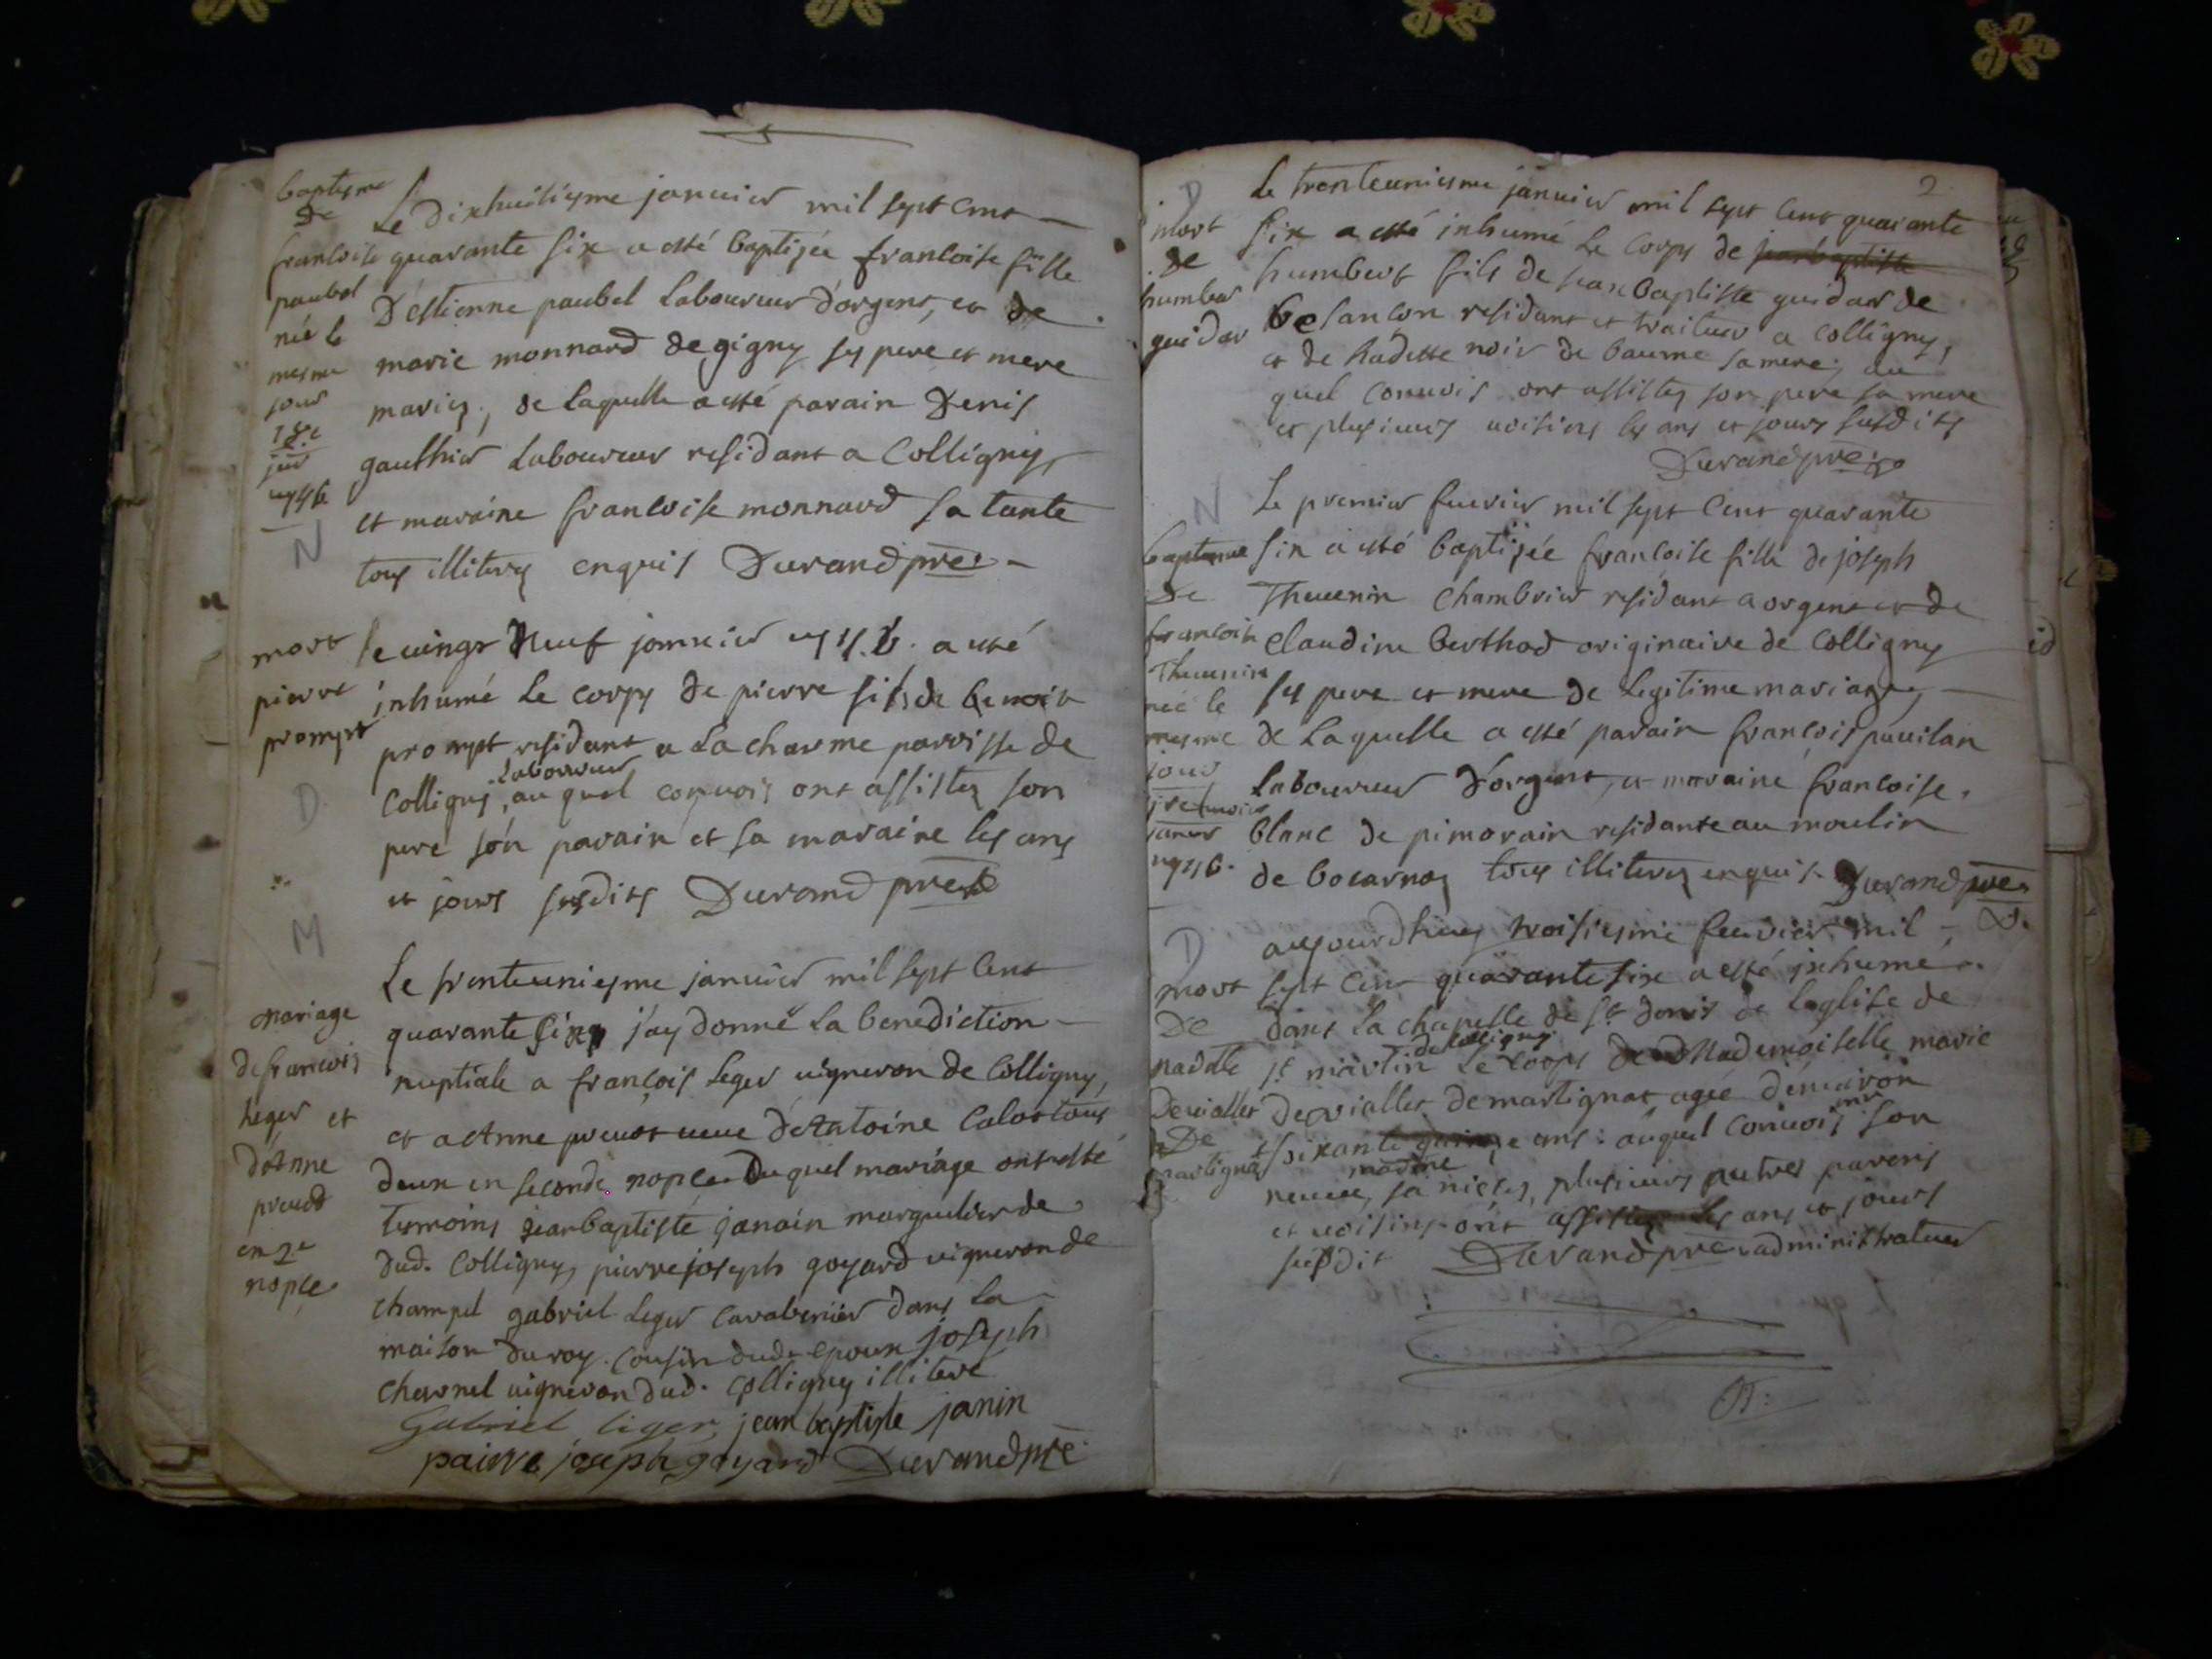 baptesme
de
francoise
paubel
née le
mesme
jour
18e
jer
1746
N
Le dixhuitiesme janvier mil sept cent
quarante six a esté baptisée francoise fille
D'estienne paubel Laboureur d'orgent, et de
marie monnard de gigny ses pere et mere
mariez, de laquelle a esté parain Denis
gauthier Laboureur residant a Colligny,
et maraine francoise monnard sa tante
tous illiterez enquis Durand pre
mort
pierre
prompt
D
le vingt Neuf janvier 1746. a esté
inhumé Le corps de pierre fils de benoit
prompt residant a La charme parroisse de
Laboureur
Colligny, au quel convois ont assistez son
pere son parain et sa maraine les ans
et jours susdits Durand pre
M
mariage
de francois
Leger et
d'Anne
prevost
en 2e
nopce
Le trenteuniesme janvier mil sept Cent
quarante six j'ay donné La benediction
nuptiale a françois Leger vigneron de Colligny,
et a Anne prevost veuve d'Antoine Calas tous
deux en seconde nopce Duquel mariage ont esté
tesmoins jeanbaptiste janain marguelier de
dud. Colligny, pierre joseph goyard vigneron de
champel gabriel Leger Carabenier dans La
maison du roy. Cousin dud. epoux joseph
charnel vigneron dud. Colligny illitere
Gabriel liger jean baptiste janin
paierre joseph goyard Durand pre
2
D
mort
de
humber
guidar
Le trenteuniesme janvier mil sept Cent quarante
six a esté inhumé Le Corps de jeanbaptiste
humbert fils de jean baptiste guidar de
besançon residant et traiteur a Colligny,
et de hadette noir de baume sa mere; au
quel Convois ont assistez son pere sa mere
et plusieurs voisins les ans et jours susdits
Durand pre
N
baptesme
de
francoise
Thevenin
née le
mesme
jour
1746.
Le premier fevrier mil sept Cent quarante
six a esté baptisée francoise fille de joseph
Thevenin Chambrier residant a orgent et de
Claudine berthod originaire de Colligny
ses pere et mere de Legitime mariage,
de Laquelle a esté parain françois pavilan
Laboureur d'orgent, et maraine francoise
blanc de pimorain residante au moulin
de bocarnoz tous illiterez enquis Durand pre
D
mort
De
madlle
Devialles
De
martignat
aujourdhuy troisiesme fevrier mil
sept Cent quarante six a esté inhumé
dans La chapelle de St denis de Leglise de
de colligny
St martin Le Corps de Mademoiselle marie
devialles de martignat agée d'environ
soixante quinze ans: auquel Convois son
neveu, sa niesse, plusieurs autres parens
et voisins ont assistez les ans et jours
susdit Durand pre administrateur